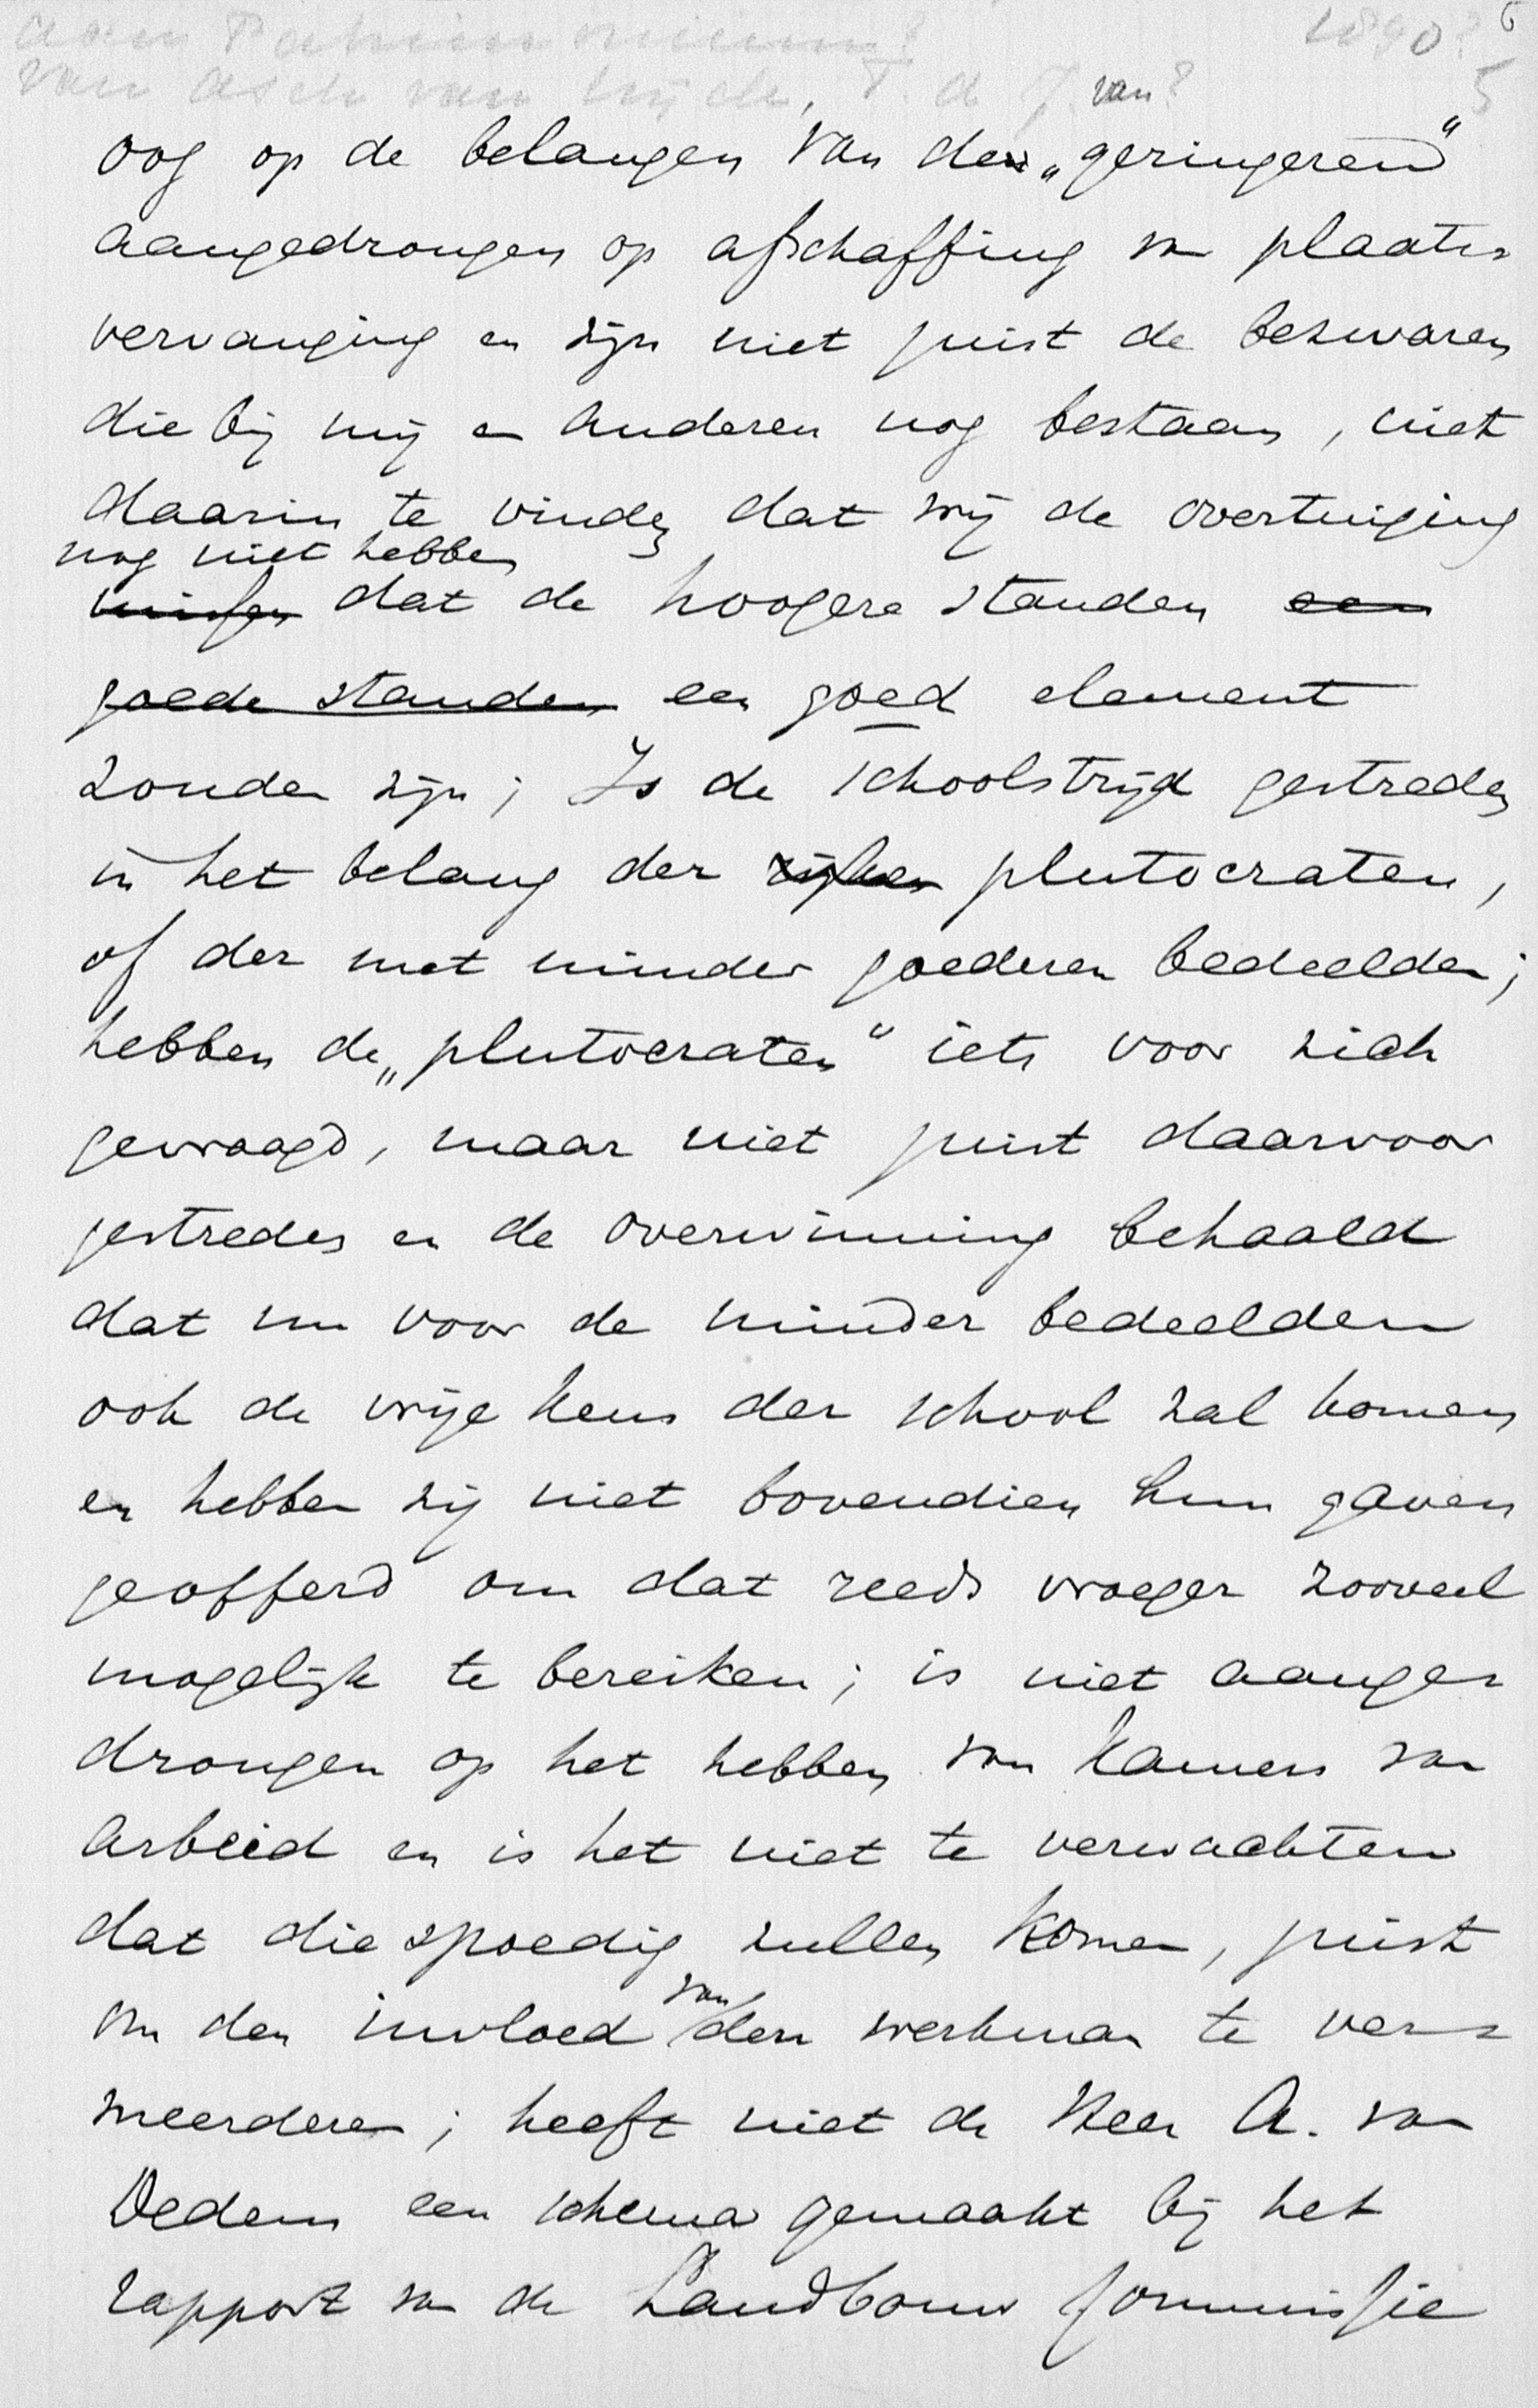 1890? 6
van Asch van Wijck, T. d J. van? 5
oog op de belangen van den „geringeren"
aangedrongen op afschaffing van plaats-
vervanging en zijn niet juist de bezwaren
die bij mij en anderen nog bestaan, niet
daarin te vinden dat wij de overtuiging
nog niet hebben
dat de hoogere standen een
goede standen een goed element
zouden zijn; Is de schoolstrijd gestreden
in het belang der rijken plutocraten,
of der met minder goederen bedeelden;
hebben de „plutocraten" iets voor zich
gevraagd, maar niet juist daarvoor
gestreden en de overwinning behaald
dat nu voor de minder bedeelden
ook de vrije keus der school zal komen
en hebben zij niet bovendien hun gaven
geofferd om dat reeds vroeger zooveel
mogelijk te bereiken; is niet aange-
drongen op het hebben van Kamers van
Arbeid en is het niet te verwachten
dat die spoedig zullen komen, juist
om den invloed van den werkman te ver-
meerderen; heeft niet de Heer A. van
Dedem een schema gemaakt bij het
rapport van de Landbouw Commissie